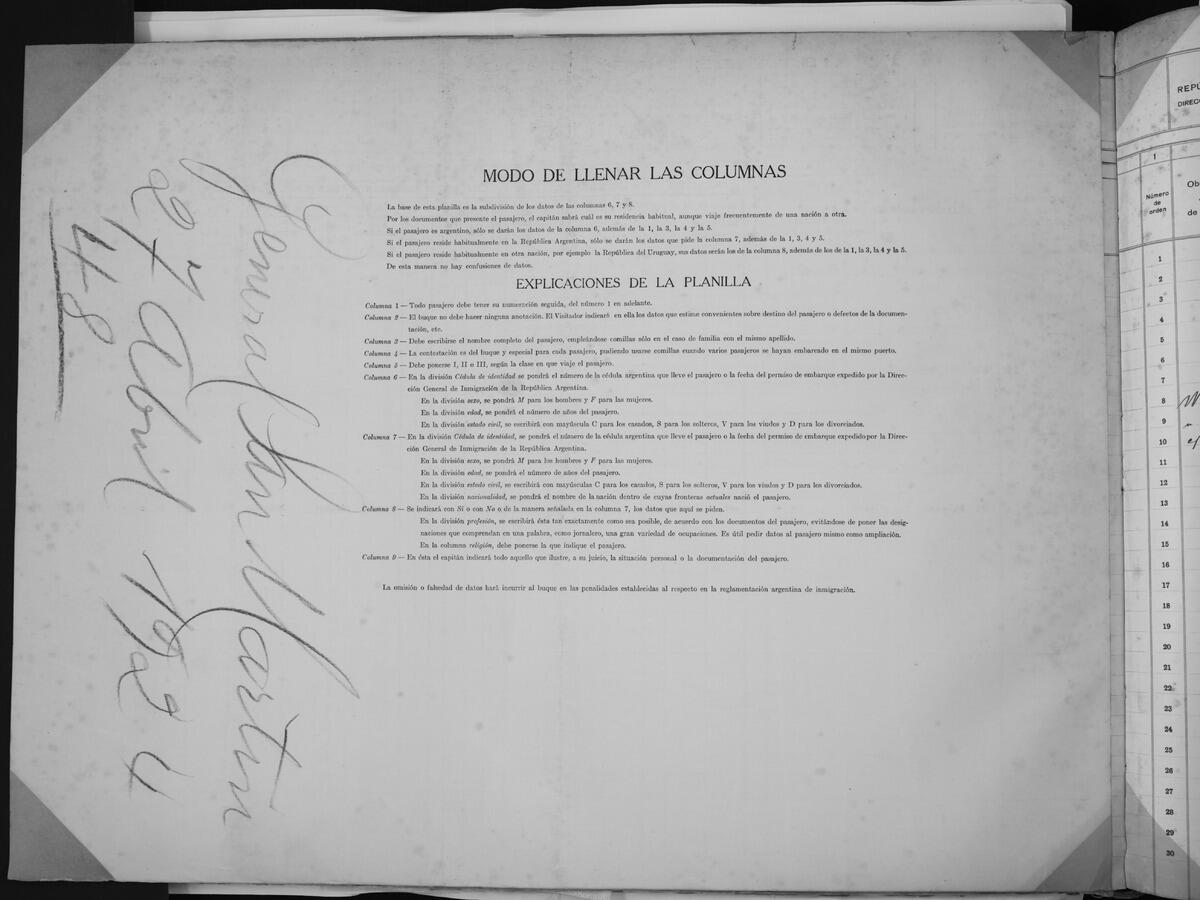 General San Martin
27 Abril 1924
48
MODO DE LLENAR LAS COLUMNAS
La base de esta planilla es la subdivisión de los datos de las columnas 6, 7 y 8.
Por los documentos que presente el pasajero, el capitán sabrá cuál es su residencia habitual, aunque viaje frecuentemente de una nación a otra.
Si el pasajero es argentino, sólo se darán los datos de la columna 6, además de la 1, la 3, la 4 y la 5.
Si el pasajero reside habitualmente en la República Argentina, sólo se darán los datos que pide la columna 7, además de la 1, 3, 4 y 5.
Si el pasajero reside habitualmente en otra nación, por ejemplo la República del Uruguay, sus datos serán los de la columna 8, además de los de la 1, la 3, la 4 y la 5.
De esta manera no hay confusiones de datos.
EXPLICACIONES DE LA PLANILLA
Columna 1 — Todo pasajero debe tener su numeración seguida, del número 1 en adelante.
Columna 2 — El buque no debe hacer ninguna anotación. El Visitador indicará en ella los datos que estime convenientes sobre destino del pasajero o defectos de la documen-
tación, etc.
Columna 3 — Debe escribirse el nombre completo del pasajero, empleándose comillas sólo en el caso de familia con el mismo apellido.
Columna 4 — La contestación es del buque y especial para cada pasajero, pudiendo usarse comillas cuando varios pasajeros se hayan embarcado en el mismo puerto.
Columna 5 — Debe ponerse I, II o III, según la clase en que viaje el pasajero.
Columna 6 — En la división Cédula de identidad se pondrá el número de la cédula argentina que lleve el pasajero o la fecha del permiso de embarque expedido por la Direc-
ción General de Inmigración de la República Argentina.
En la división sexo, se pondrá M para los hombres y F para las mujeres.
En la división edad, se pondrá el número de años del pasajero.
En la división estado civil, se escribirá con mayúscula C para los casados, S para los solteros, V para los viudos y D para los divorciados.
Columna 7 — En la división Cédula de identidad, se pondrá el número de la cédula argentina que lleve el pasajero o la fecha del permiso de embarque expedido por la Direc-
ción General de Inmigración de la República Argentina.
En la división sexo, se pondrá M para los hombres y F para las mujeres.
En la división edad, se pondrá el número de años del pasajero.
En la división estado civil, se escribirá con mayúsculas C para los casados, S para los solteros, V para los viudos y D para los divorciados.
En la división nacionalidad, se pondrá el nombre de la nación dentro de cuyas fronteras actuales nació el pasajero.
Columna 8 — Se indicará con Sí o con No o de la manera señalada en la columna 7, los datos que aquí se piden.
En la división profesión, se escribirá ésta tan exactamente como sea posible, de acuerdo con los documentos del pasajero, evitándose de poner las desig-
naciones que comprendan en una palabra, como jornalero, una gran variedad de ocupaciones. Es útil pedir datos al pasajero mismo como ampliación.
En la columna religión, debe ponerse la que indique el pasajero.
Columna 9 — En ésta el capitán indicará todo aquello que ilustre, a su juicio, la situación personal o la documentación del pasajero.
La omisión o falsedad de datos hará incurrir al buque en las penalidades establecidas al respecto en la reglamentación argentina de inmigración.
REPÚ
DIREC
1
Número
de
orden
Ob
de
1
2
3
4
5
6
7
8
9
10
11
12
13
14
15
16
17
18
19
20
21
22
23
24
25
26
27
28
29
30